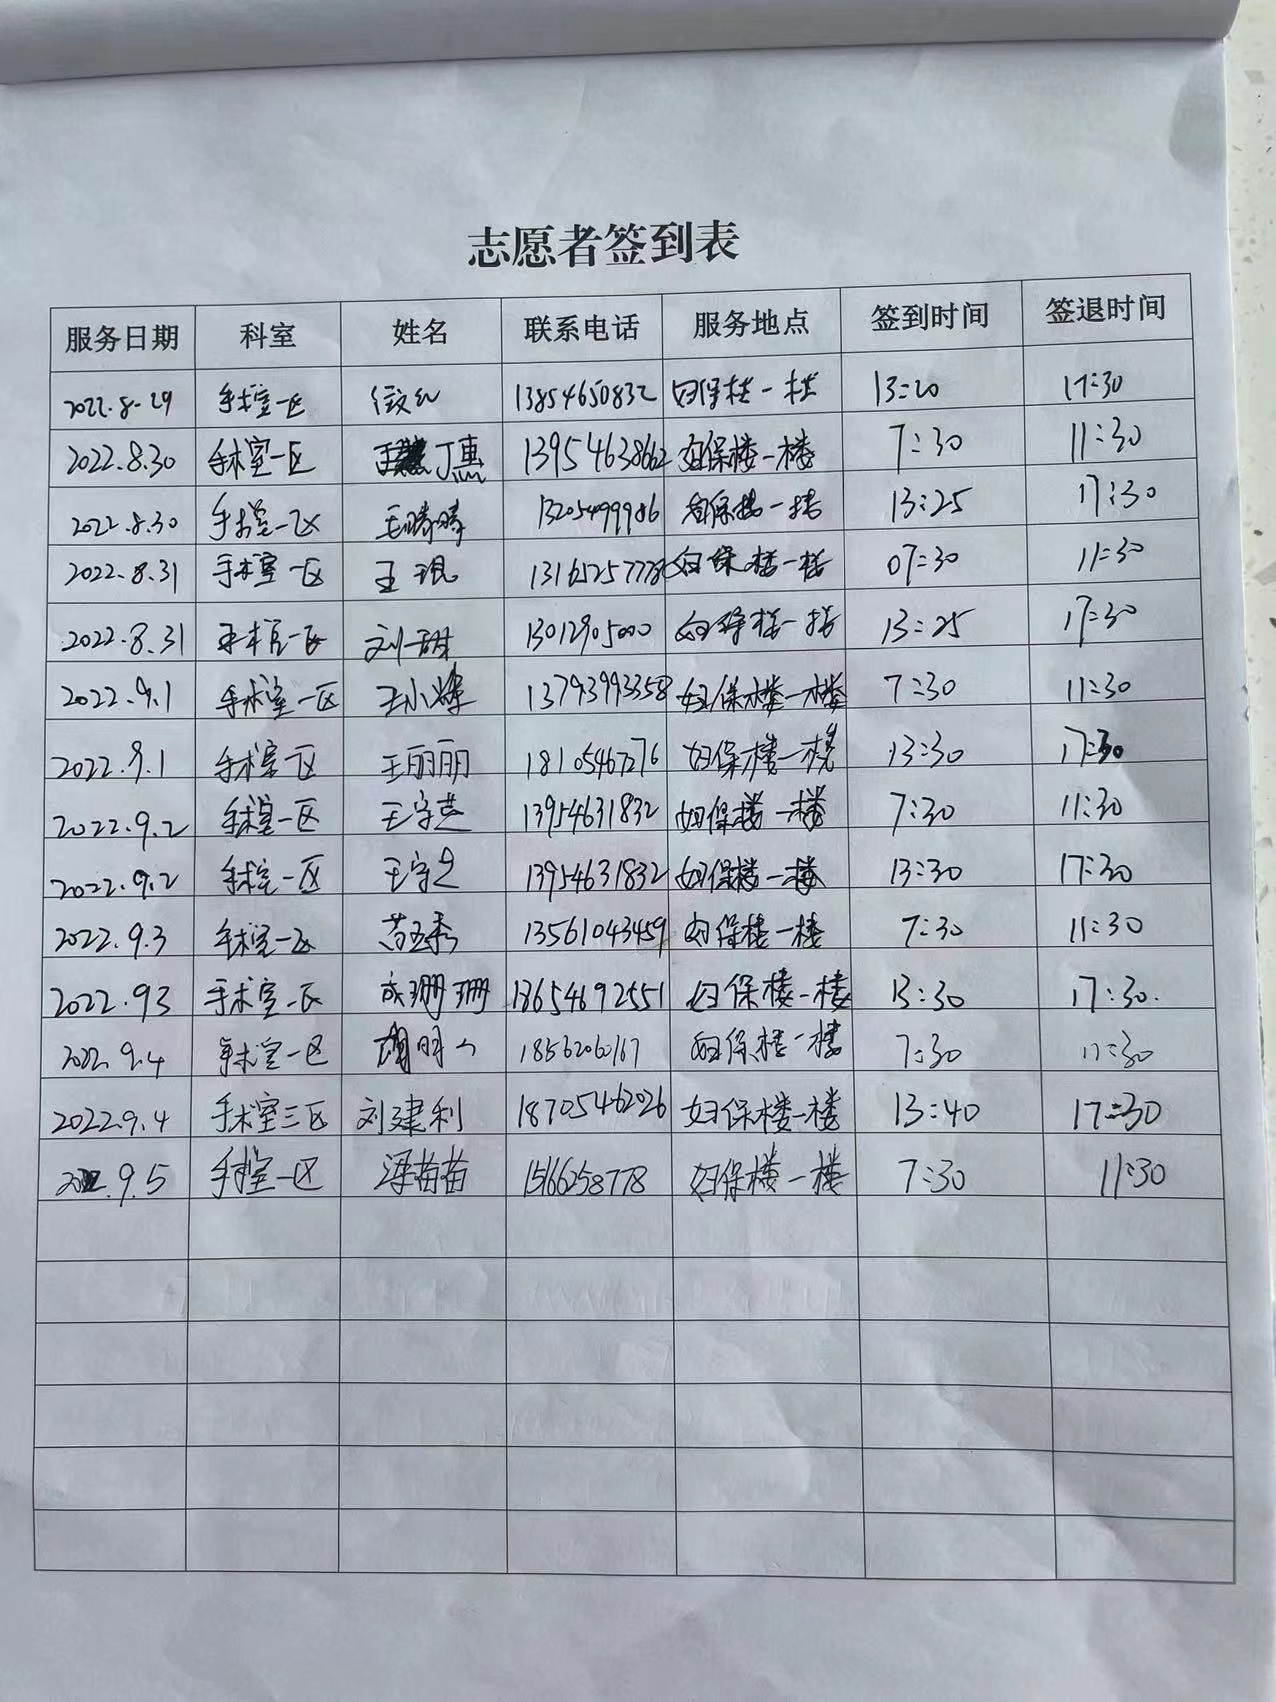 志愿者签到表
服务日期 科室 姓名 联系电话 服务地点 签到时间 签退时间
2022.8.29 手术室一区 13854650832 妇保楼一楼 13:20 17:30
2022.8.30 手术室一区 丁惠 13954638662 妇保楼一楼 7:30 11:30
2022.8.30 手术室一区 王晴晴 13205499986 妇保楼一楼 13:25 17:30
2022.8.31 手术室一区 王琨 13165257778 妇保楼一楼 07:30 11:30
2022.8.31 手术室一区 刘甜 13012905000 妇保楼一楼 13:25 17:30
2022.9.1 手术室一区 王小烽 13793993358 妇保楼一楼 7:30 11:30
2022.9.1 手术室一区 王丽丽 18105467276 妇保楼一楼 13:30 17:30
2022.9.2 手术室一区 13954631832 妇保楼一楼 7:30 11:30
2022.9.2 手术室一区 13954631832 妇保楼一楼 13:30 17:30
2022.9.3 手术室一区 苗秀 13561043459 妇保楼一楼 7:30 11:30
2022.93 手术室一区 成珊珊 13654692551 妇保楼一楼 13:30 17:30.
2022.9.4 手术室一区 18562060167 妇保楼一楼 7:30 11:30
2022.9.4 手术室三区 刘建利 18705462026 妇保楼一楼 13:40 17:30
2022.9.5 手术室一区 梁苗苗 15166258778 妇保楼一楼 7:30 11:30